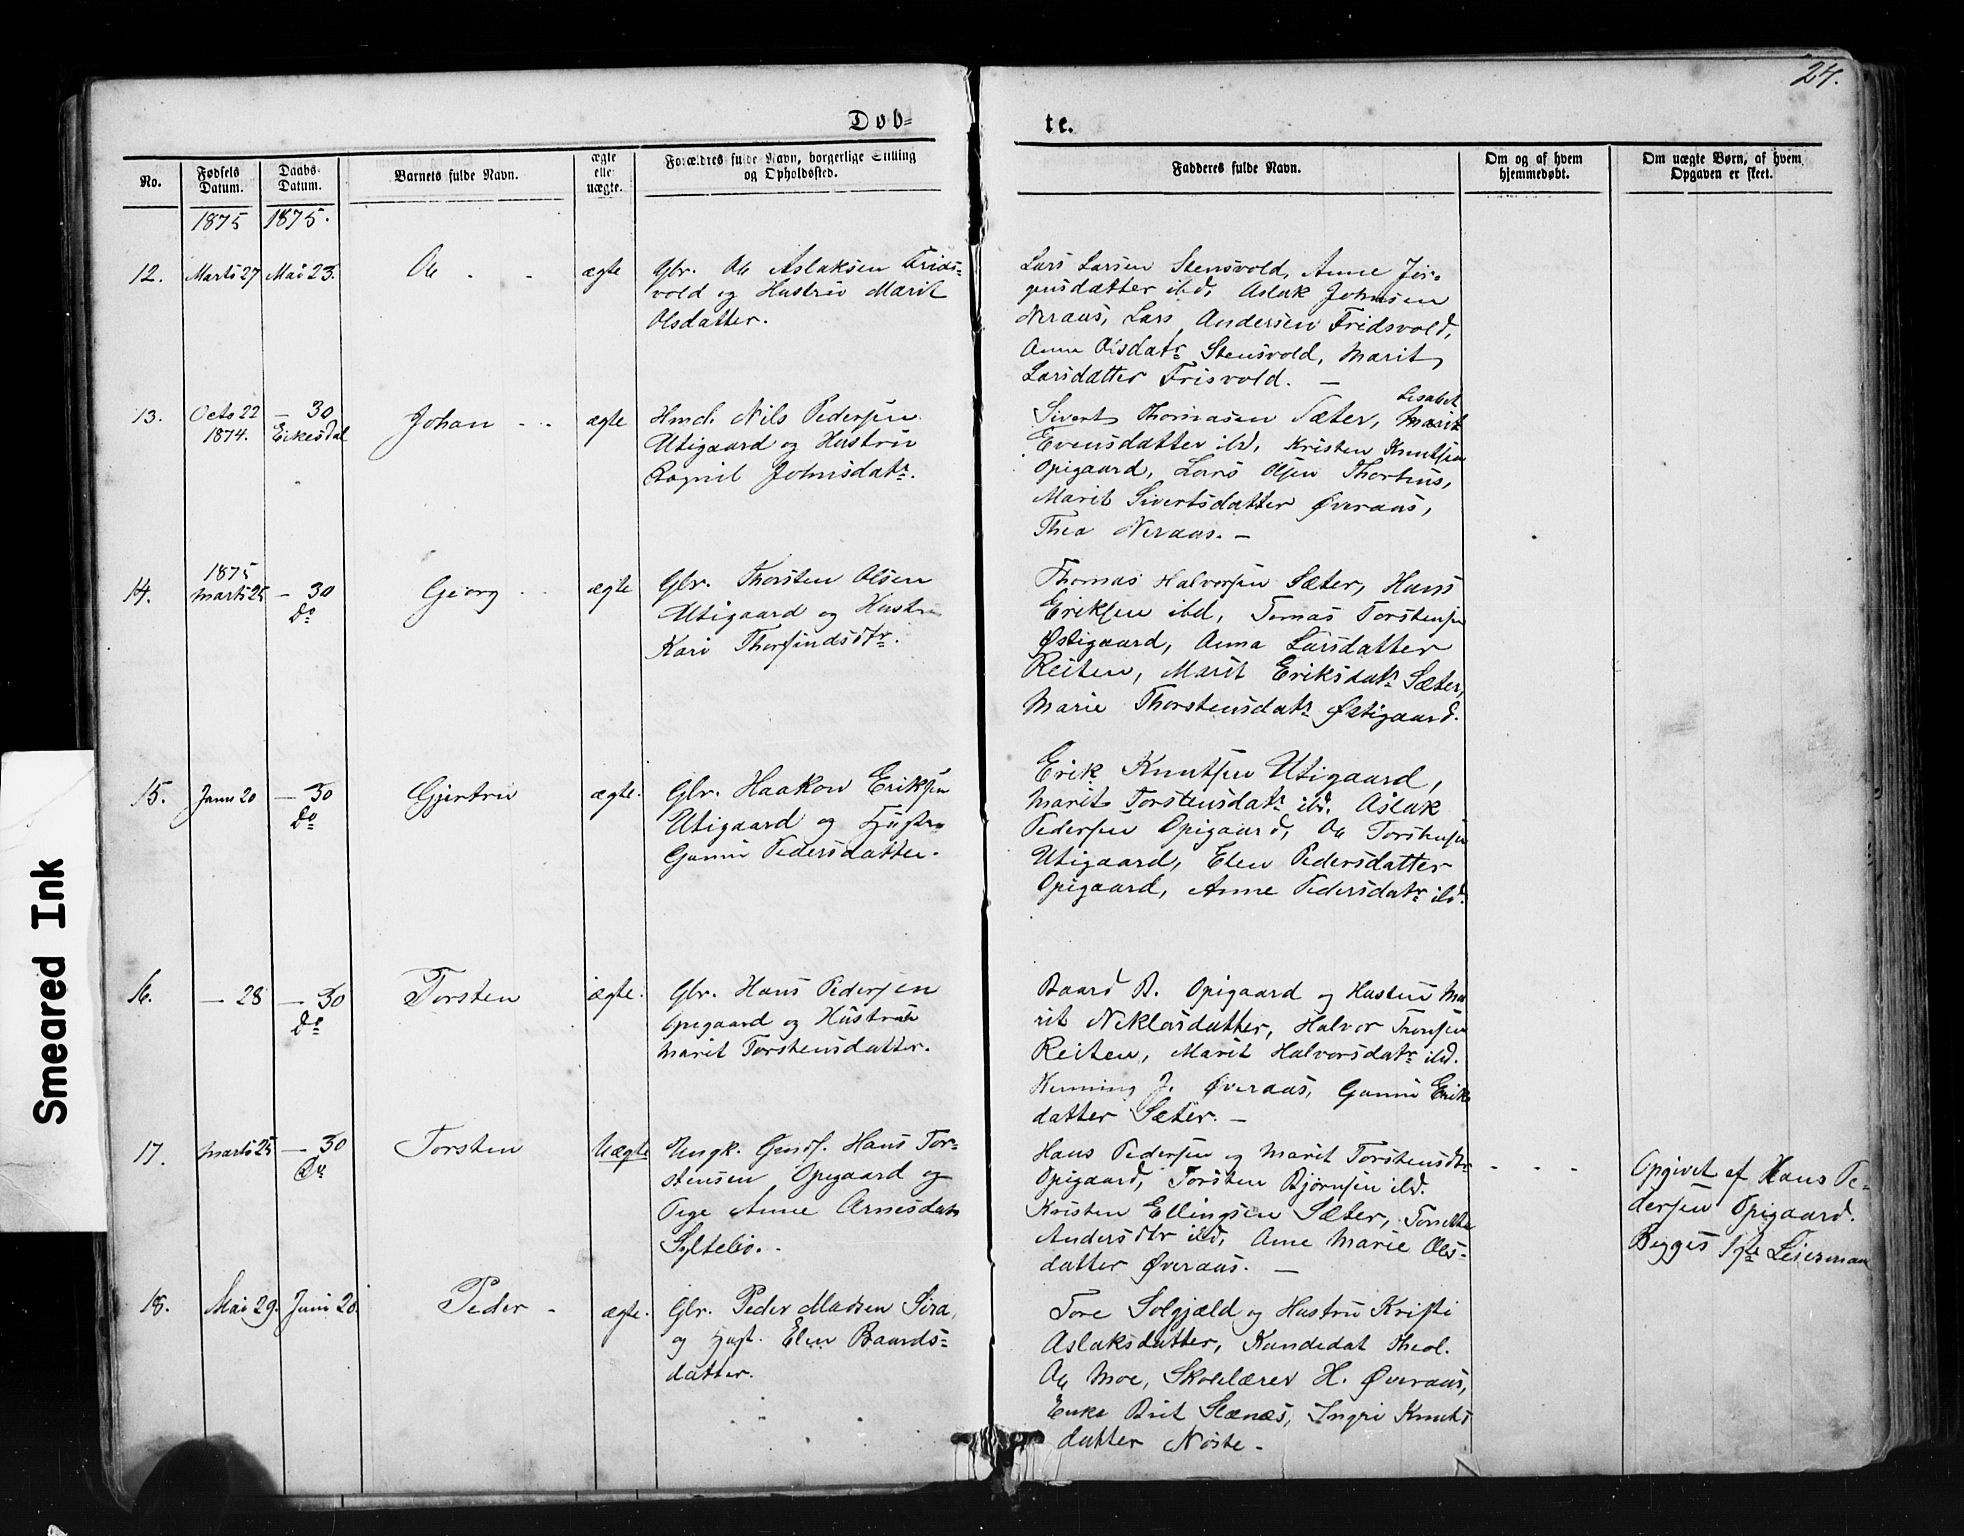 24.
Døb-
te.
No.
Fødsels Datum.
Daabs-Datum.
Barnets fulde Navn.
ægte elle uægte.
Forældres fulde Navn, borgerlige Stilling og Opholdssted.
Fadderes fulde Navn.
Om og af hvem hjemmedøbt.
Om uægte Børn, af hvem Opgaven er skeet.
1875 1875.
12. Marts 27 Mai 23. Ole - - ægte
Gbr. Ole Aslaksen Frids-
vold og Hustru Marit
Olsdatter.
Lars Larsen Stensvold, Anne Jør-
gensdatter ibd, Aslak Johnsen
Neraas, Lars Andersen Fridsvold,
Anne Olsdatr Stensvold, Marit
Larsdatter Frisvold. —
13. Octo 22 1874. — 30 Eikesdal Johan - - ægte
Hmd. Nils Pedersen
Utigaard og Hustru
Ragnil Johnsdatr.
Lisabet
Sivert Thomasen Sæter, Marit
Evensdatter ibd, Kristen Knutsen
Opigaard, Lars Olsen Thorhus,
Marit Sivertsdatter Øveraas,
Thea Neraas. —
14. 1875 Marts 25 — 30 do Georg - - ægte
Gbr. Thorsten Olsen
Utigaard og Hustru
Kari Thorfindsdtr.
Thomas Halvorsen Sæter, Hans
Eriksen ibd, Tomas Torstensen
Østigaard, Anna Larsdatter
Reiten, Marit Eriksdatr Sæter,
Marie Thorstensdatr Østigaard.
15. Janu 20 — 30 do Gjertru ægte.
Gbr. Haakon Eriksen
Utigaard og Hustru
Gunni Pedersdatter.
Erik Knutsen Utigaard,
Marit Torstensdatr ibd. Aslak
Pedersen Opigaard, Ole Torstensen
Utigaard, Elen Pedersdatter
Opigaard, Anne Pedersdatr ibd.
16. — 28 — 30 do Torsten ægte.
Gbr. Hans Pedersen
Opigaard og Hustru
Marit Torstensdatter.
Baard B. Opigaard og Hustru Ma
rit Niklasdatter, Halvor Tronsen
Reiten, Marit Halvorsdatr ibd.
Henning J. Øveraas, Gunni Eriks
datter Sæter. —
17. Marts 25 — 30 do Torsten Uægte
Ungk. Gmdf. Hans Tor-
stensen Opigaard og
Pige Anne Arnesdatr
Syltebø.
Hans Pedersen og Marit Torstensdtr
Opigaard, Torsten Bjørnsen ibd.
Kristen Ellingsen Sæter,
Andersdtr ibd, Ane Marie Ols-
datter Øveraas. —
- - -
Opgivet af Hans Pe-
dersen Opigaard.
Begges 1ste Leiermaal
18. Mai 29. Juni 20. Peder - ægte.
Gbr. Peder Madsen Sira,
og Hust. Elen Baards-
datter.
Tore Solgjæld og Hustru Kristi
Aslaksdatter, Kandidat Theol.
Ole Moe, Skolelærer H. Øveraas,
Enke Brit Stenæs, Ingri Knuts
datter Nøste —
Smeared Ink